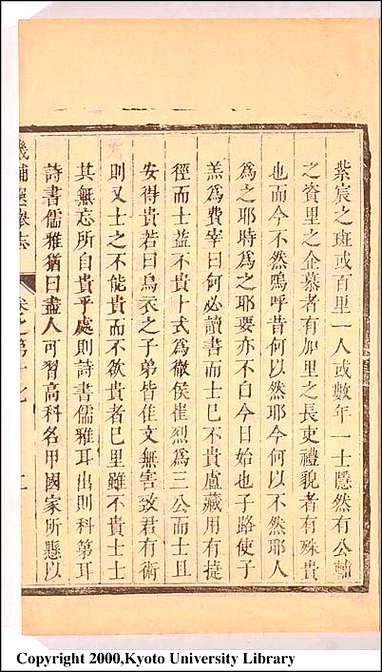 紫宸之班或百里一人或數年一士隱然有公輔
之資里之企慕者有加里之長吏禮貌者有殊貴
也而今不然嗚呼昔何以然耶今何以不然耶人
為之耶時為之耶要亦不自今日始也子路使子
羔為費宰曰何必讀書而士已不貴盧藏用有捷
徑而士益不貴卜式為徹侯崔烈為三公而士且
安得貴若曰烏衣之子弟皆佳文無害致君有術
則又士之不能貴而不欲貴者已里雖不貴士士
其無忘所自貴乎處則詩書儒雅耳出則科第耳
詩書儒雅猶曰盡人可習高科名甲國家所懸以
選舉志
卷之第十七
Copyright 2000,Kyoto University Library